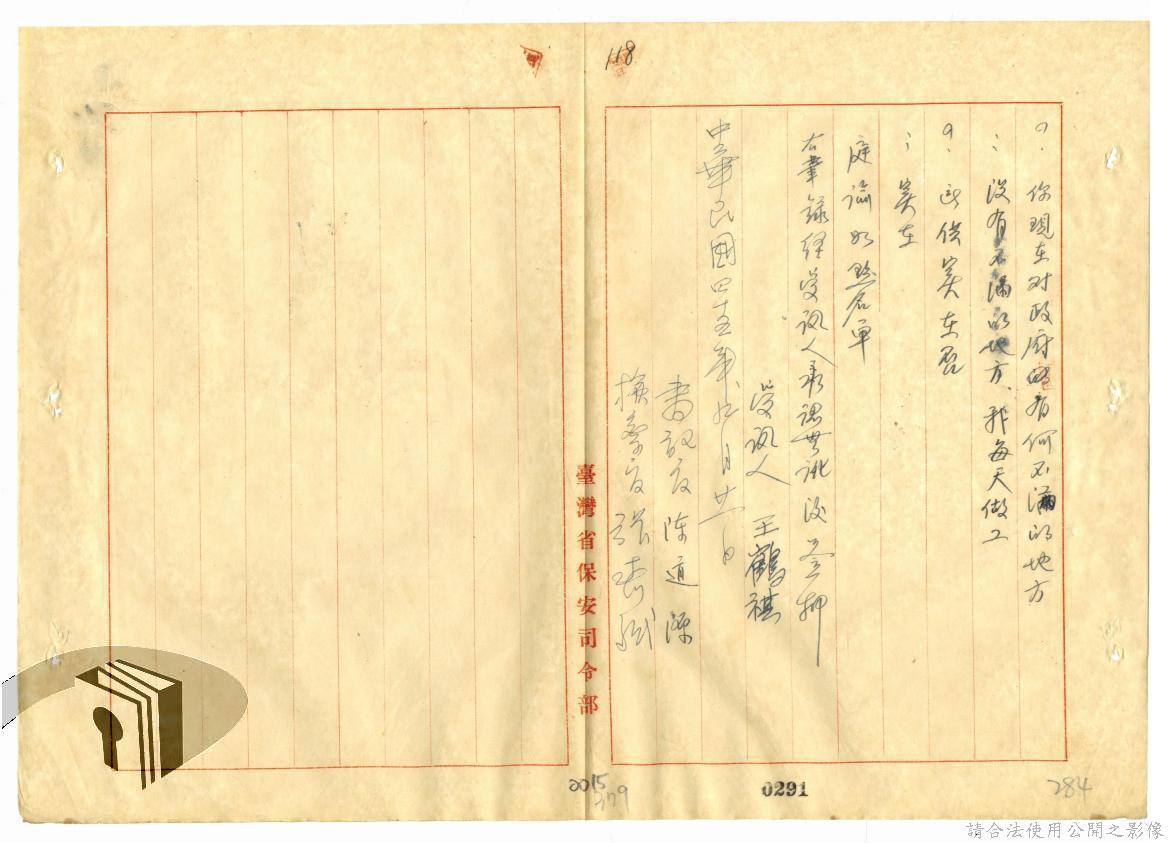 118
？你現在对政府的有何不滿的地方
：沒有不滿的地方、我每天做工
？此供实在否
：实在
庭諭如點名單
右筆錄経受訊人承認無訛後簽押
受訊人 王鶴祺
中華民國四十五年九月廿一日
書記官 陈道
檢察官
臺灣省保安司令部
2015
279
0291
284
請合法使用公開之影像